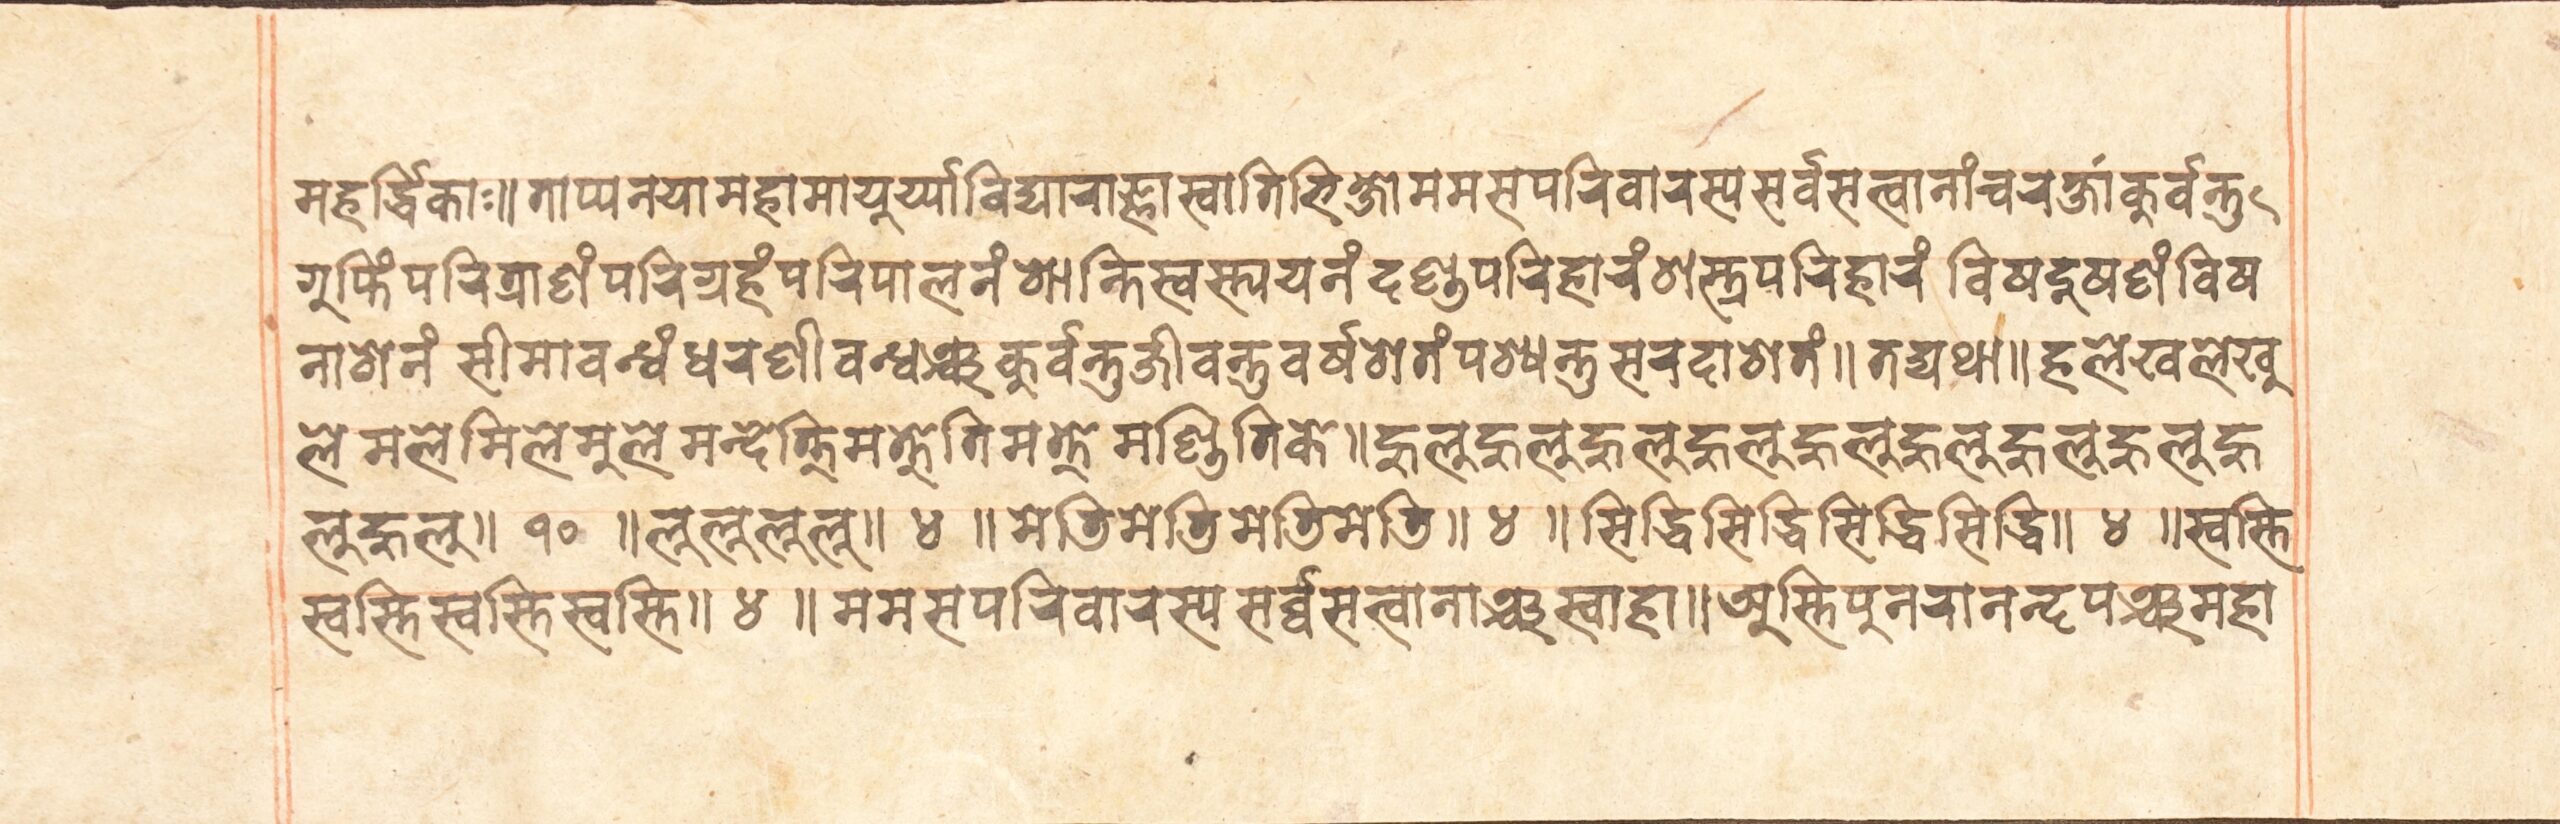 महर्द्धिकाः॥ताप्यनयामहामायुर्य्याविद्याराज्ञास्वातिभिक्षोममसपरिवारस्यसर्वसत्वानांच्चरक्षांकुर्वन्तु
गुप्तिंपरित्राणंपरिग्रहंपरिपालनंशान्तिस्वस्त्ययनंदण्डपरिहारंशस्त्रपरिहारं विषदुषणंविष
नाशनं सीमावन्धंधरणीवन्धञ्चकुर्वन्तुजीवन्तुवर्षशतंपश्यन्तुसरदाशतं॥तद्यथा॥हलेखलेखु
लेमलेमिलेमुलेमन्देत्तिमत्तेतिमत्ते मण्डितिके॥हुलुहुलुहुलुहुलुहुलुहुलुहुलुहुलुहु
लुहुलु॥ १० ॥लुलुलुलु॥ ४ ॥मेतिमेतिमेतिमेति॥ ४ ॥सिद्धिसिद्धिसिद्धिसिद्धि॥ ४ ॥स्वस्ति
स्वस्तिस्वस्तिस्वस्ति॥ ४ ॥ममसपरिवारस्यसर्व्वसत्वानाञ्चस्वाहा॥अस्तिपुनरानन्दपञ्चमहा